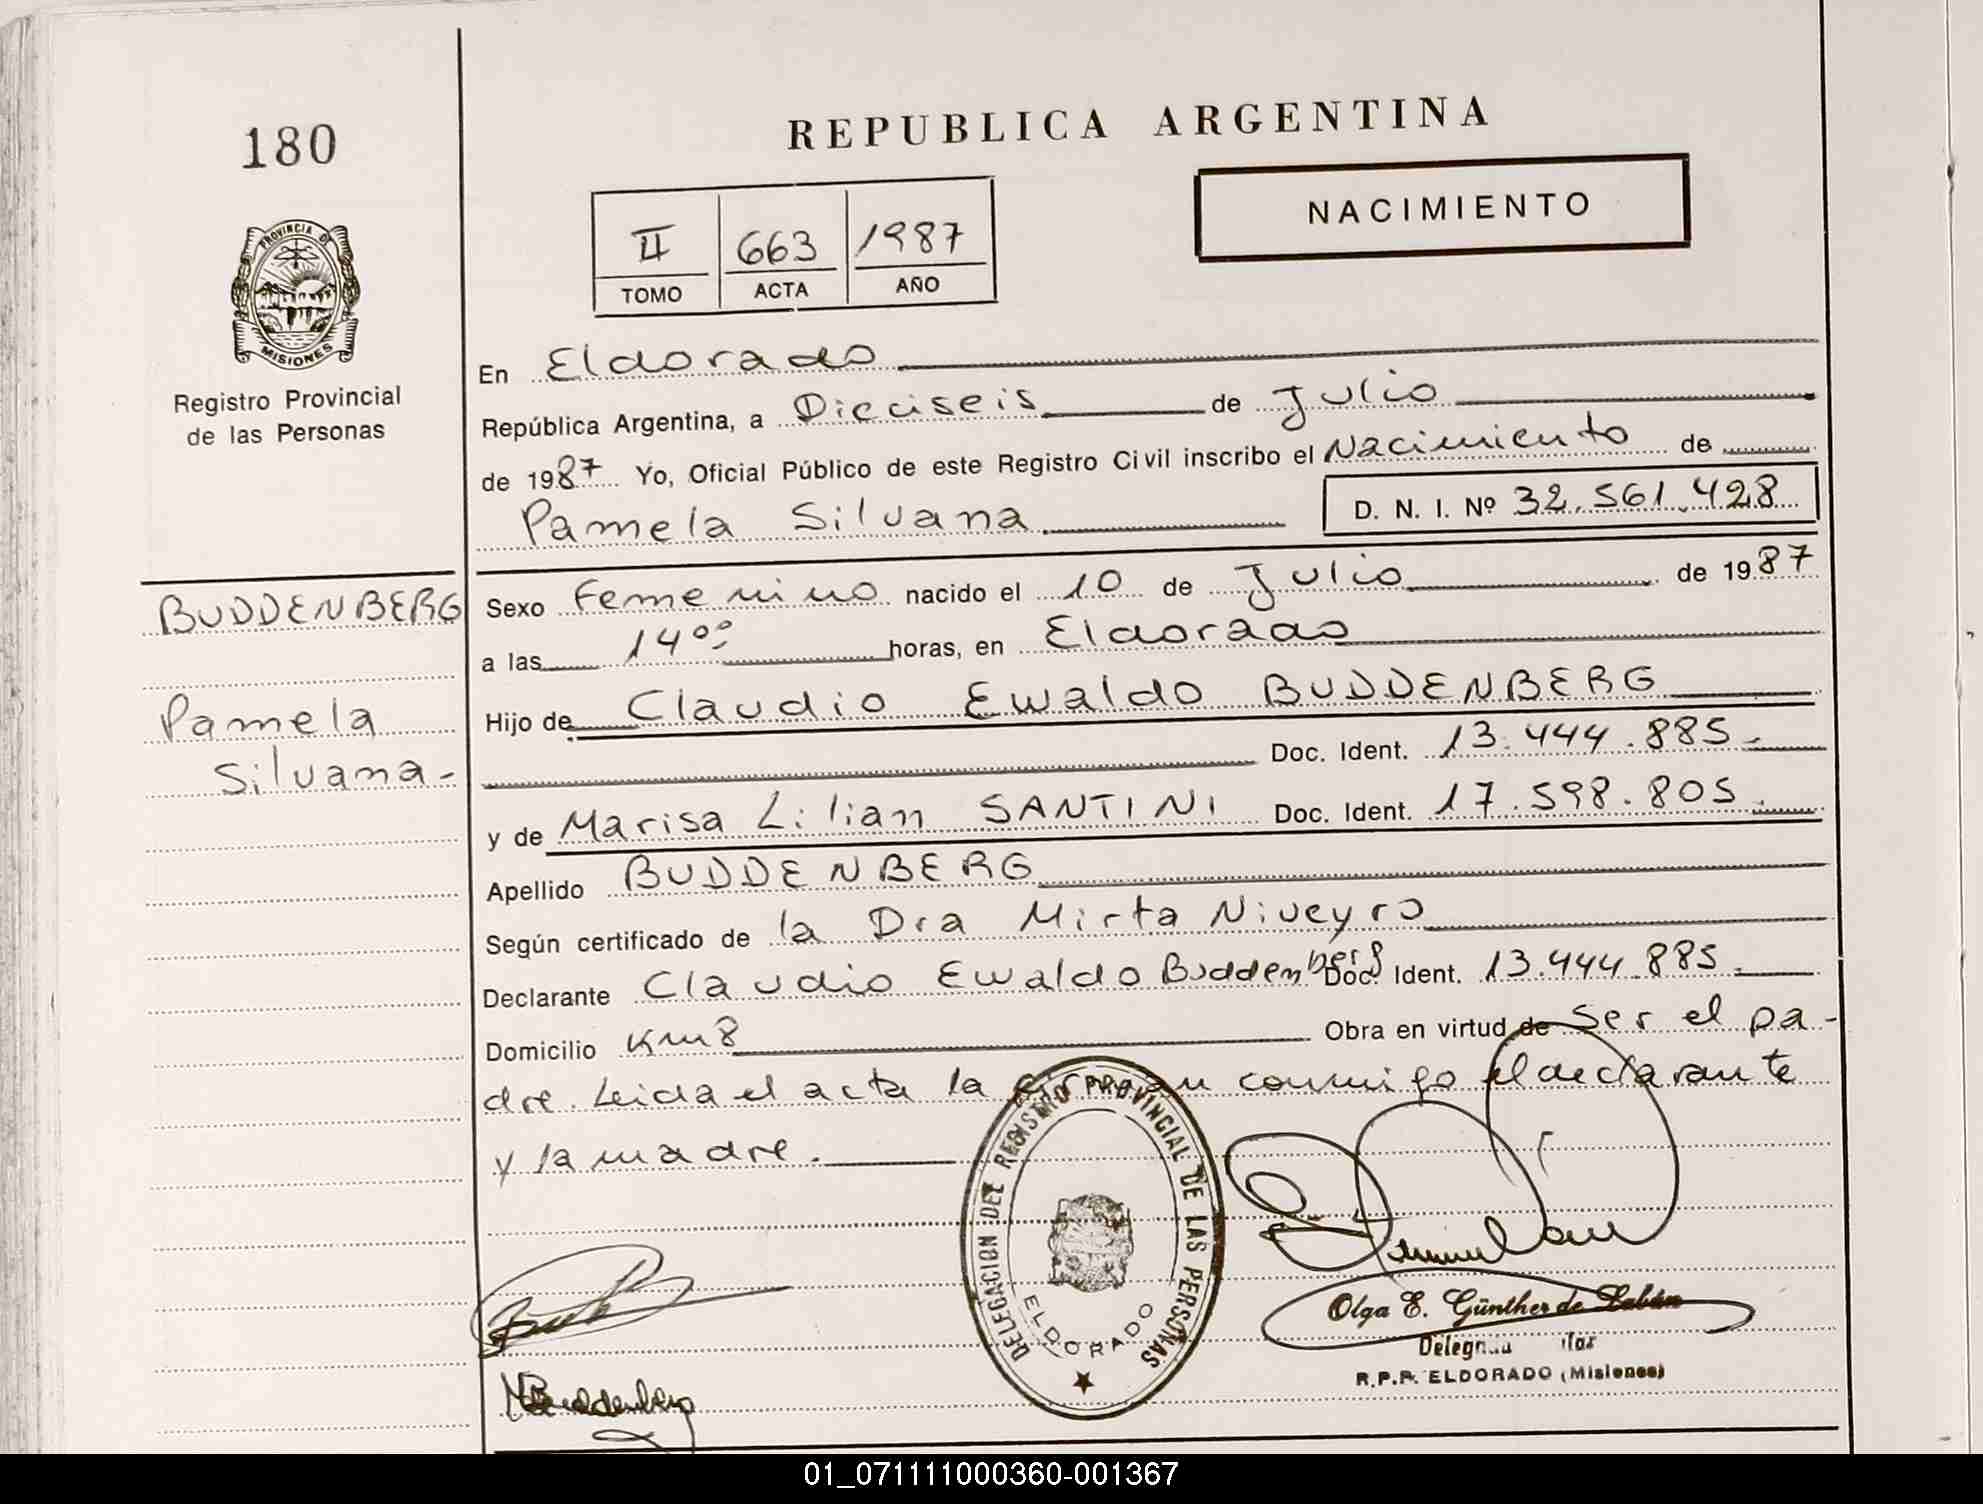 180
REPUBLICA ARGENTINA
NACIMIENTO
II 663 1987
TOMO ACTA AÑO
PROVINCIA DE
MISIONES
Registro Provincial
de las Personas
En Eldorado
República Argentina, a Dieciseis de Julio
de 1987 Yo, Oficial Público de este Registro Civil inscribo el Nacimiento de
Pamela Silvana D. N. I. Nº 32.561.428
BUDDENBERG
Pamela
Silvana.-
Sexo Femenino nacido el 10 de Julio de 1987
a las 14⁰⁰ horas, en Eldorado
Hijo de Claudio Ewaldo BUDDENBERG
Doc. Ident. 13.444.885.-
y de Marisa Lilian SANTINI Doc. Ident. 17.598.805.
Apellido BUDDENBERG
Según certificado de la Dra Mirta Niveyro
Declarante Claudio Ewaldo Buddenberg Doc. Ident. 13.444.885.
Domicilio Km 8 Obra en virtud de ser el pa-
dre. Leida el acta la conmigo el declarante
y la madre.
DELEGACION DEL REGISTRO PROVINCIAL DE LAS PERSONAS
ELDORADO
MBuddenberg
Olga E. Günther de
R.P.P. ELDORADO (Misiones)
01_071111000360-001367